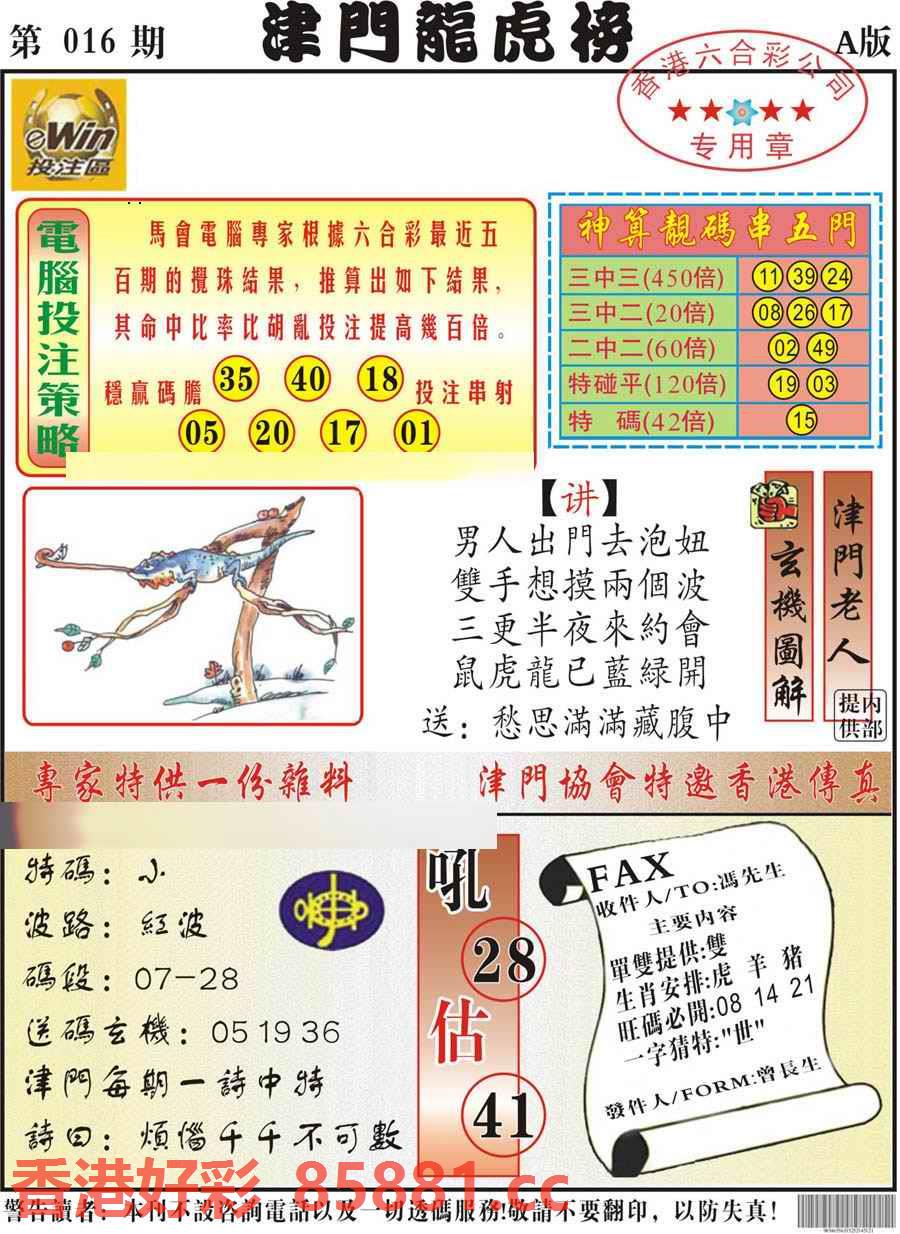 第 016 期
津門龍虎榜
A版
香港六合彩公司
专用章
eWin
投注區
電腦投注策略
馬會電腦專家根據六合彩最近五
百期的攪珠結果，推算出如下結果，
其命中比率比胡亂投注提高幾百倍。
穩贏碼膽 35 40 18 投注串射
05 20 17 01
神算靚碼串五門
三中三(450倍) 11 39 24
三中二(20倍) 08 26 17
二中二(60倍) 02 49
特碰平(120倍) 19 03
特 碼(42倍) 15
【讲】
男人出門去泡妞
雙手想摸兩個波
三更半夜來約會
鼠虎龍已藍綠開
送：愁思滿滿藏腹中
玄機圖解
津門老人
内部提供
專家特供一份雜料
津門協會特邀香港傳真
特碼：小
波路：紅波
碼段：07-28
送碼玄機：05 19 36
津門每期一詩中特
詩曰：煩惱千千不可數
吼
28
估
41
FAX
收件人/TO:馮先生
主要内容
單雙提供:雙
生肖安排:虎 羊 豬
旺碼必開:08 14 21
一字猜特:"世"
發件人/FORM:曾長生
香港好彩 85881.cc
警告讀者：本刊不設咨詢電話以及一切透碼服務!敬請不要翻印，以防失真！